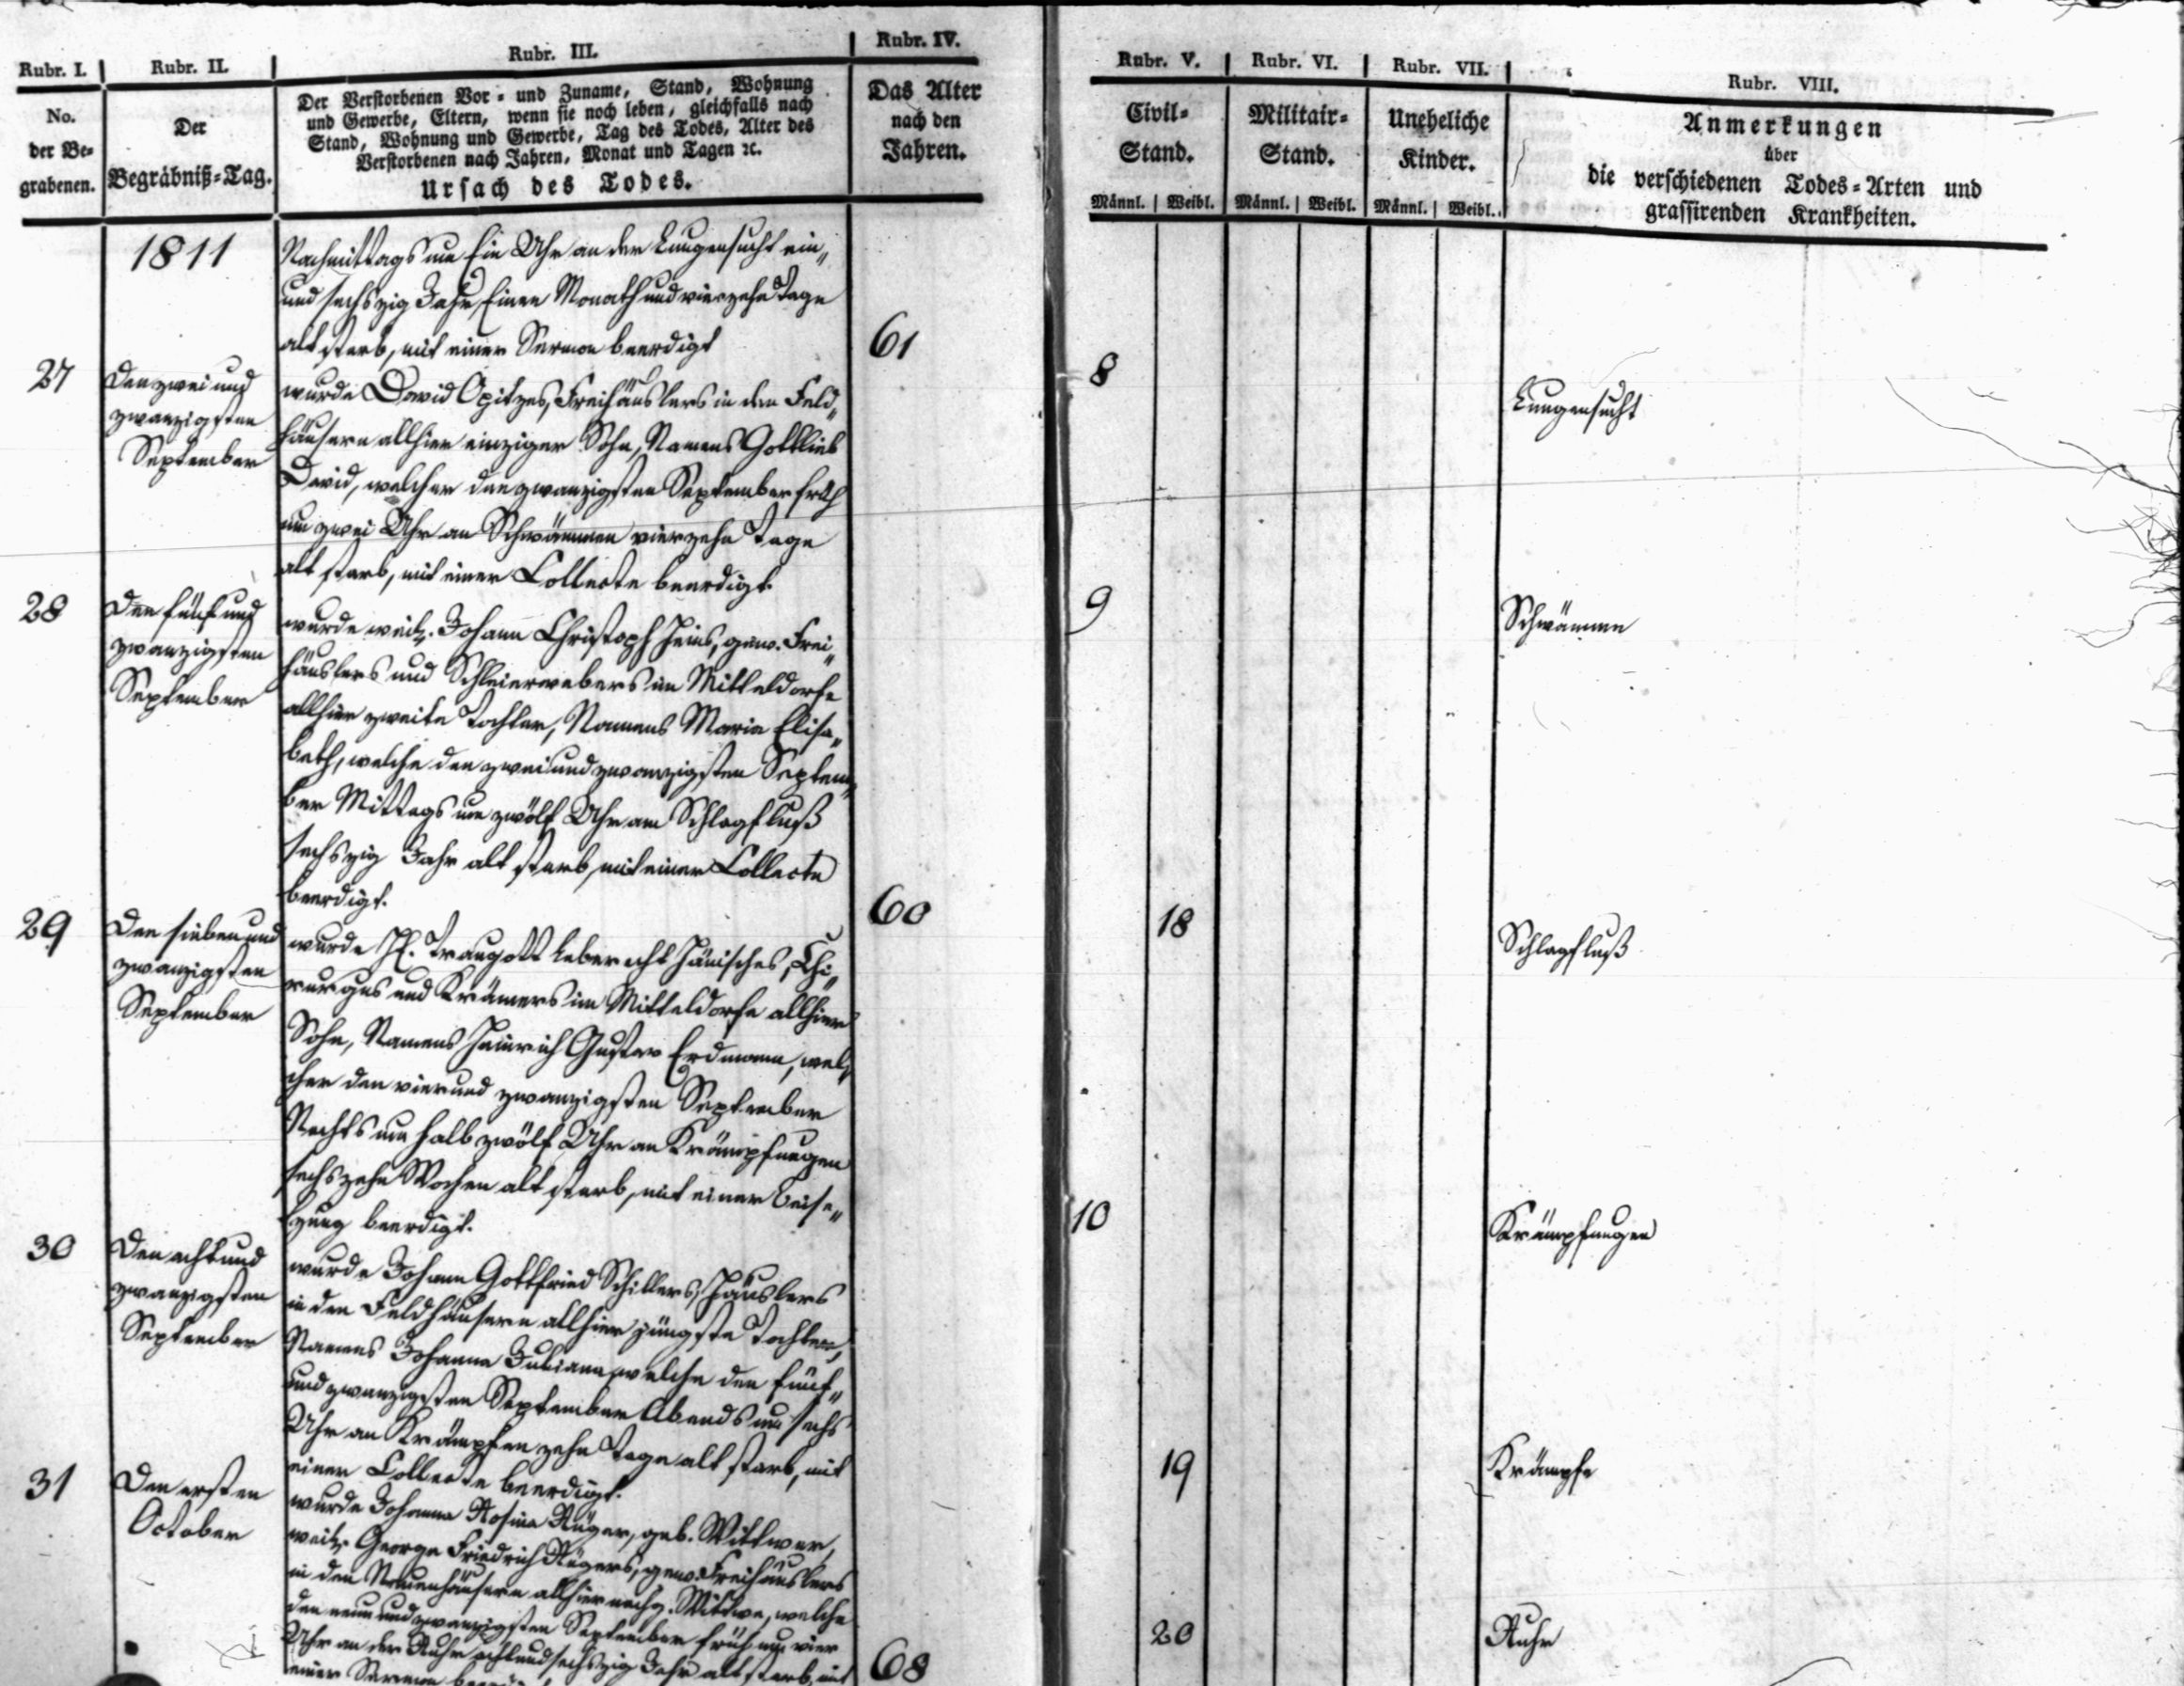 Rubr. I.
No.
der Be=
grabenen.
Rubr. II.
Der
Begräbniß=Tag.
Rubr. III.
Der Verstorbenen Vor= und Zuname, Stand, Wohnung
und Gewerbe, Eltern, wenn sie noch leben, gleichfalls nach
Stand, Wohnung und Gewerbe, Tag des Todes, Alter des
Verstorbenen nach Jahren, Monat und Tagen ꝛc.
Ursach des Todes.
Rubr. IV.
Das Alter
nach den
Jahren.
Rubr. V.
Civil=
Stand.
Männl. Weibl.
Rubr. VI.
Militair=
Stand.
Männl. Weibl.
Rubr. VII.
Uneheliche
Kinder.
Männl. Weibl.
Rubr. VIII.
Anmerkungen
über
die verschiedenen Todes=Arten und
grassirenden Krankheiten.
1811
Nachmittags um Ein Uhr an der Lungensucht ein„
und sechszig Jahr Einen Monath und vierzehn Tage
alt starb, mit einer Sermon beerdigt
61
8
Lungensucht
27
Den zwei und
zwanzigsten
September
wurde David Opitzes, Freihäuslers in den Feld„
häusern allhier einziger Sohn, Namens Gottlieb
David, welcher den zwanzigsten September früh
um zwei Uhr an Schwämmen vierzehn Tage
alt starb, mit einer Collecte beerdigt.
9
Schwämme
28
Den fünf und
zwanzigsten
September
wurde weil. Johann Christoph Heins, gew. Frei„
häuslers und Schleierwebers im Mitteldorfe
allhier zweite Tochter, Namens Maria Elisa„
beth, welche den zwei und zwanzigsten Septem„
ber Mittags um zwölf Uhr am Schlagfluß
sechszig Jahr alt starb, mit einer Collecte
beerdigt.
60
18
Schlagfluß
29
Den sieben und
zwanzigsten
September
wurde H. Traugott Leberecht Hänisches, Chi„
rurgus und Krämers im Mitteldorfe allhier
Sohn, Namens Heinrich Gustav Erdmann, wel„
cher den vier und zwanzigsten September
Nachts um halb zwölf Uhr an Krämpfungen
sechszehn Wochen alt starb, mit einer Beise„
tzung beerdigt.
10
Krämpfungen
30
Den acht und
zwanzigsten
September
wurde Johann Gottfried Schillers, Häuslers
in den Feldhäusern allhier jüngste Tochter,
Namens Johanna Juliana, welche den fünf„
und zwanzigsten September Abends um sechs
Uhr an Krämpfen zehn Tage alt starb, mit
einer Collecte beerdigt.
19
Krämpfe
31
Den ersten
October
wurde Johanna Rosina Rüger, geb. Wittwer,
weil. George Friedrich Rügers, gew. Freihäuslers
in den Neuenhäusern allhier nachg. Wittwe, welche
den neun und zwanzigsten September früh um vier
Uhr an der Ruhr acht und sechszig Jahr alt starb, mit
einer Sermon
68
20
Ruhr